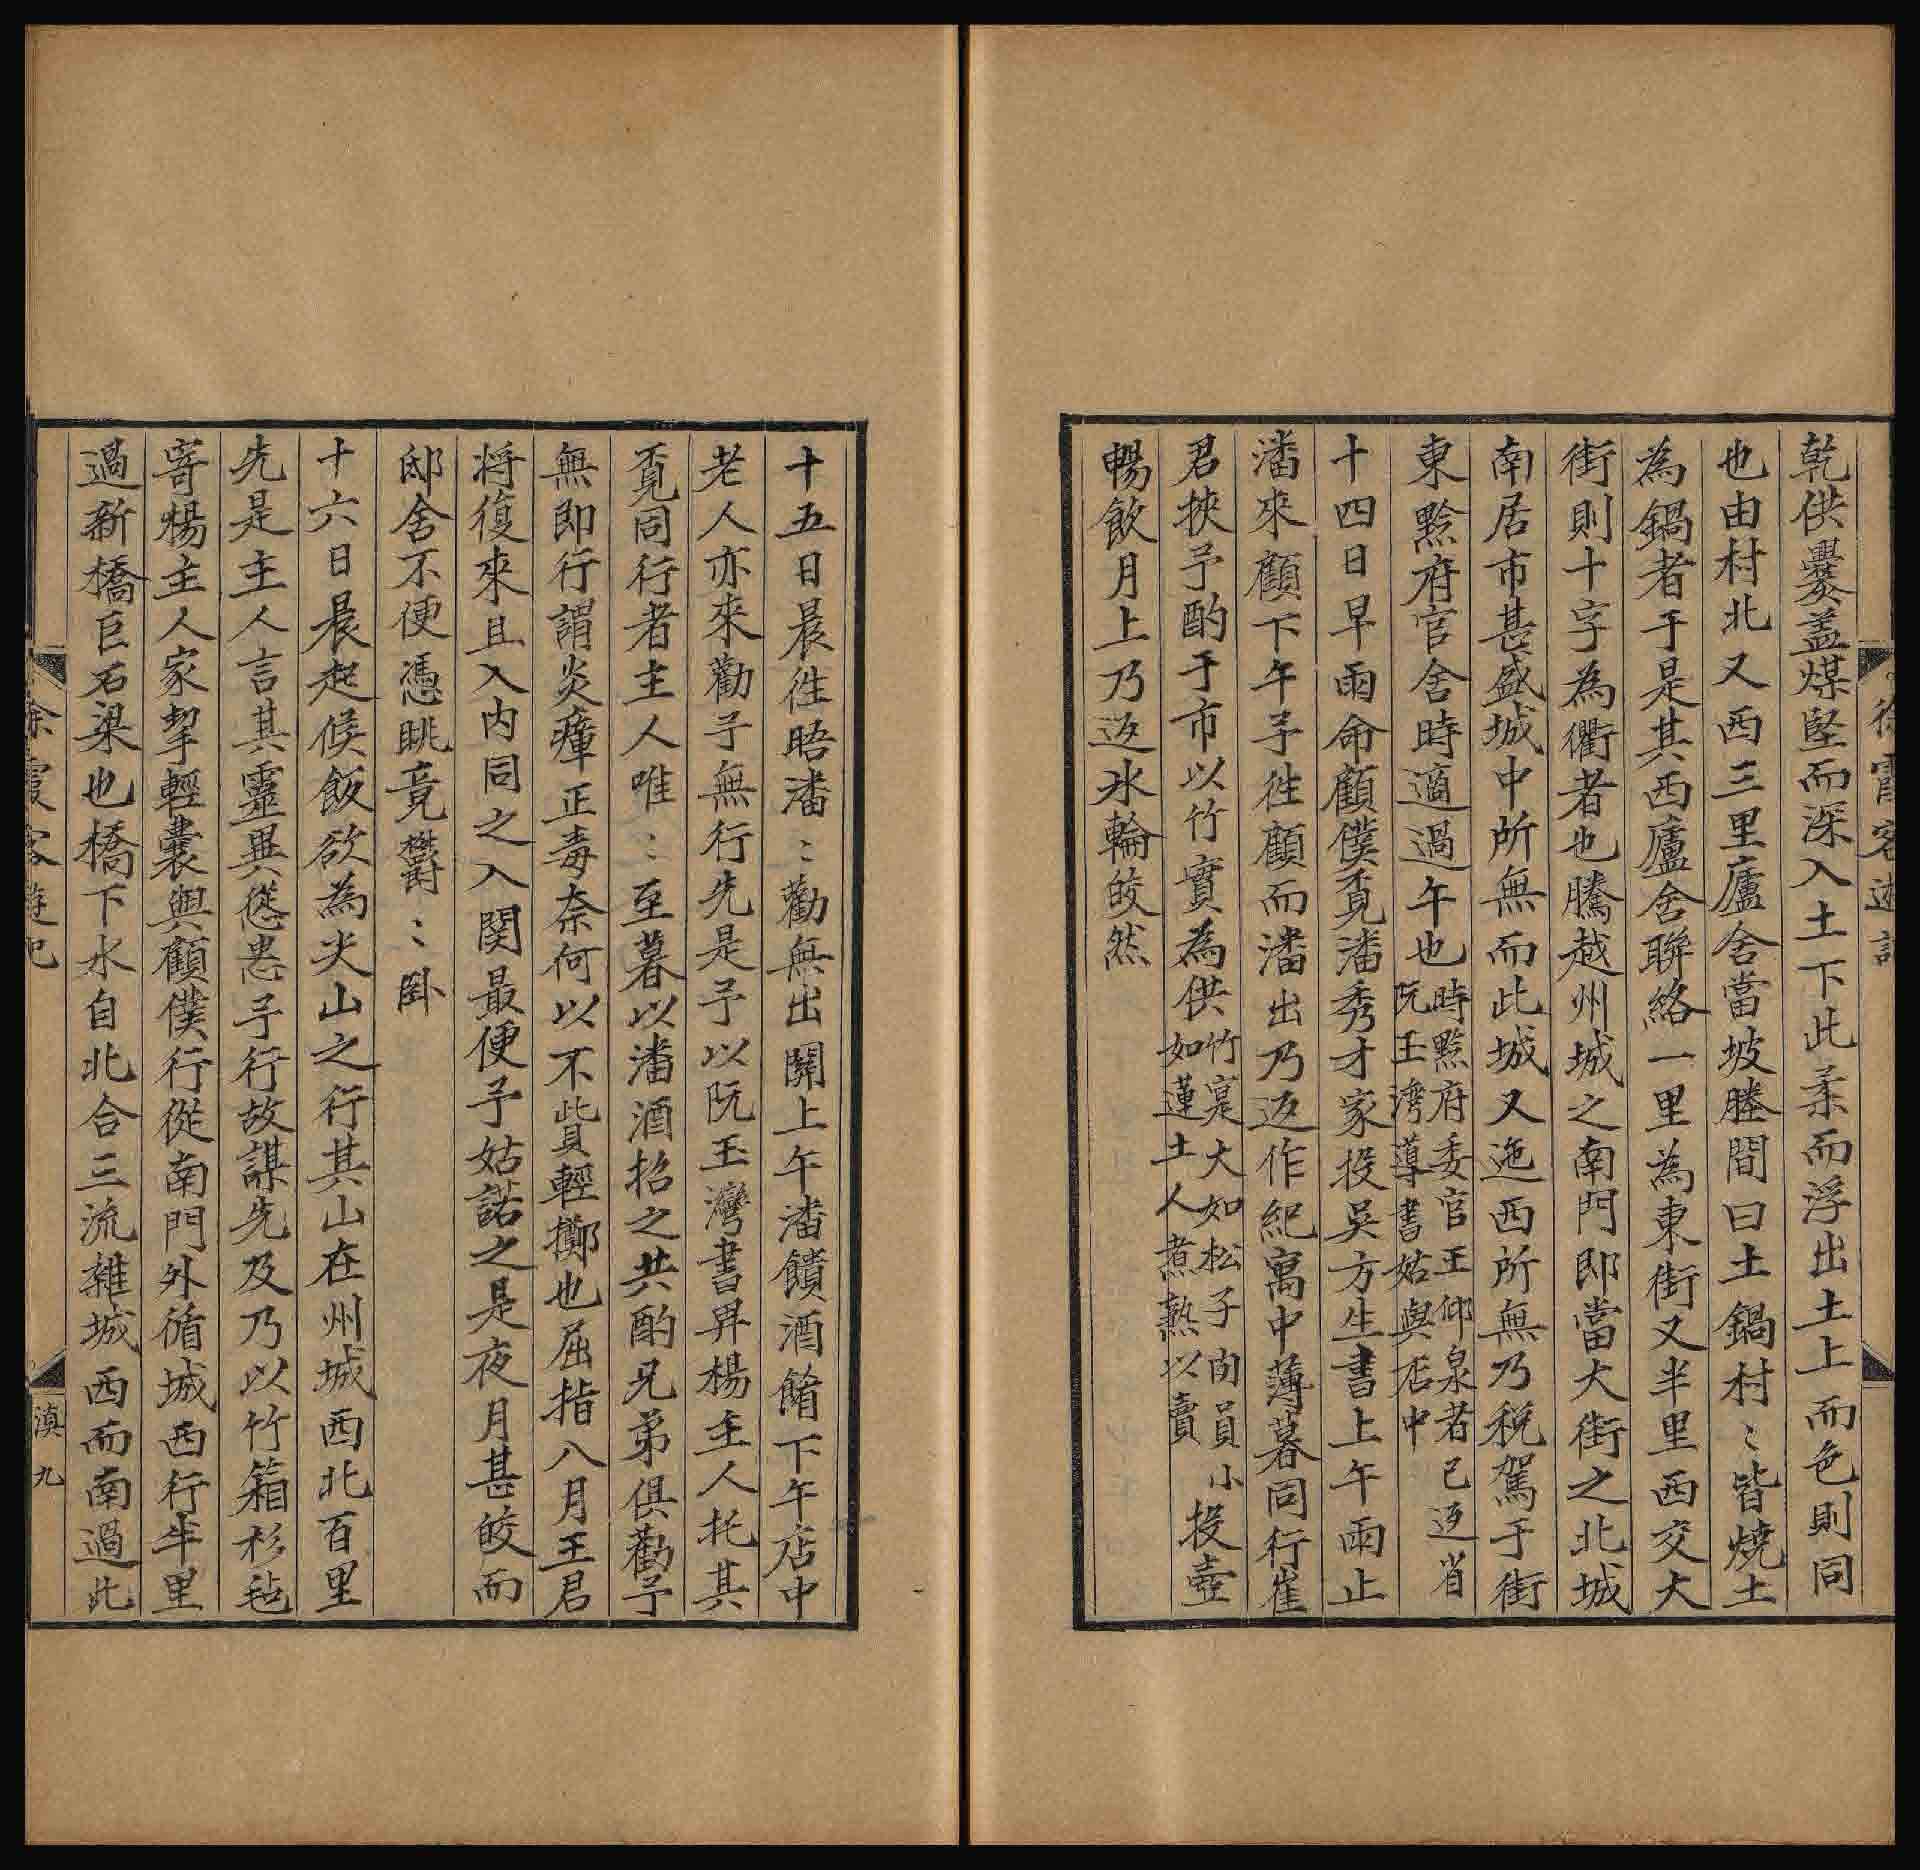 乾供爨蓋煤堅而深入土下此柔而浮出土上而色則同
也由村北又西三里廬舍當坡塍間曰土鍋村〻皆燒土
為鍋者于是其西廬舍聯絡一里為東街又半里西交大
街則十字為衢者也騰越州城之南門即當大街之北城
南居市甚盛城中所無而此城又迤西所無乃稅駕于街
東黔府官舍時適過午也時黔府委官王仰泉者已返省
阮玉灣導書姑與店中
十四日早雨命顧僕覔潘秀才家投吳方生書上午雨止
潘來顧下午予徃顧而潘出乃返作紀寓中薄暮同行崔
君挾予酌于市以竹實為供竹寔大如松子肉員小
如蓮土人煮熟以賣投壺
暢飲月上乃返氷輪皎然
十五日晨徃晤潘〻勸無出關上午潘饋酒餚下午店中
老人亦來勸予無行先是予以阮玉灣書畀楊主人托其
覔同行者主人唯〻至暮以潘酒招之共酌兄弟俱勸予
無即行謂炎瘴正毒奈何以不貲輕擲也屈指八月王君
將復來且入內同之入関最便予姑諾之是夜月甚皎而
邸舍不便憑眺竟欝〻卧
十六日晨起候飯欲為尖山之行其山在州城西北百里
先是主人言其靈異慫恿予行故謀先及乃以竹箱杉毡
寄楊主人家挈輕囊與顧僕行從南門外循城西行半里
過新橋巨石梁也橋下水自北合三流雜城西而南過此
徐霞客遊記
滇九